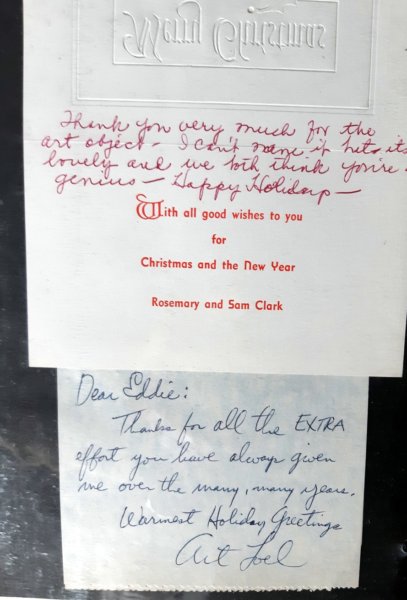 Merry Christmas
Thank you very much for the
art object – I can't name it but its
lovely and we both think you're a
genius – Happy Holidays –
With all good wishes to you
for
Christmas and the New Year
Rosemary and Sam Clark
Dear Eddie:
Thanks for all the EXTRA
effort you have always given
me over the many, many years.
Warmest Holiday Greetings
Art